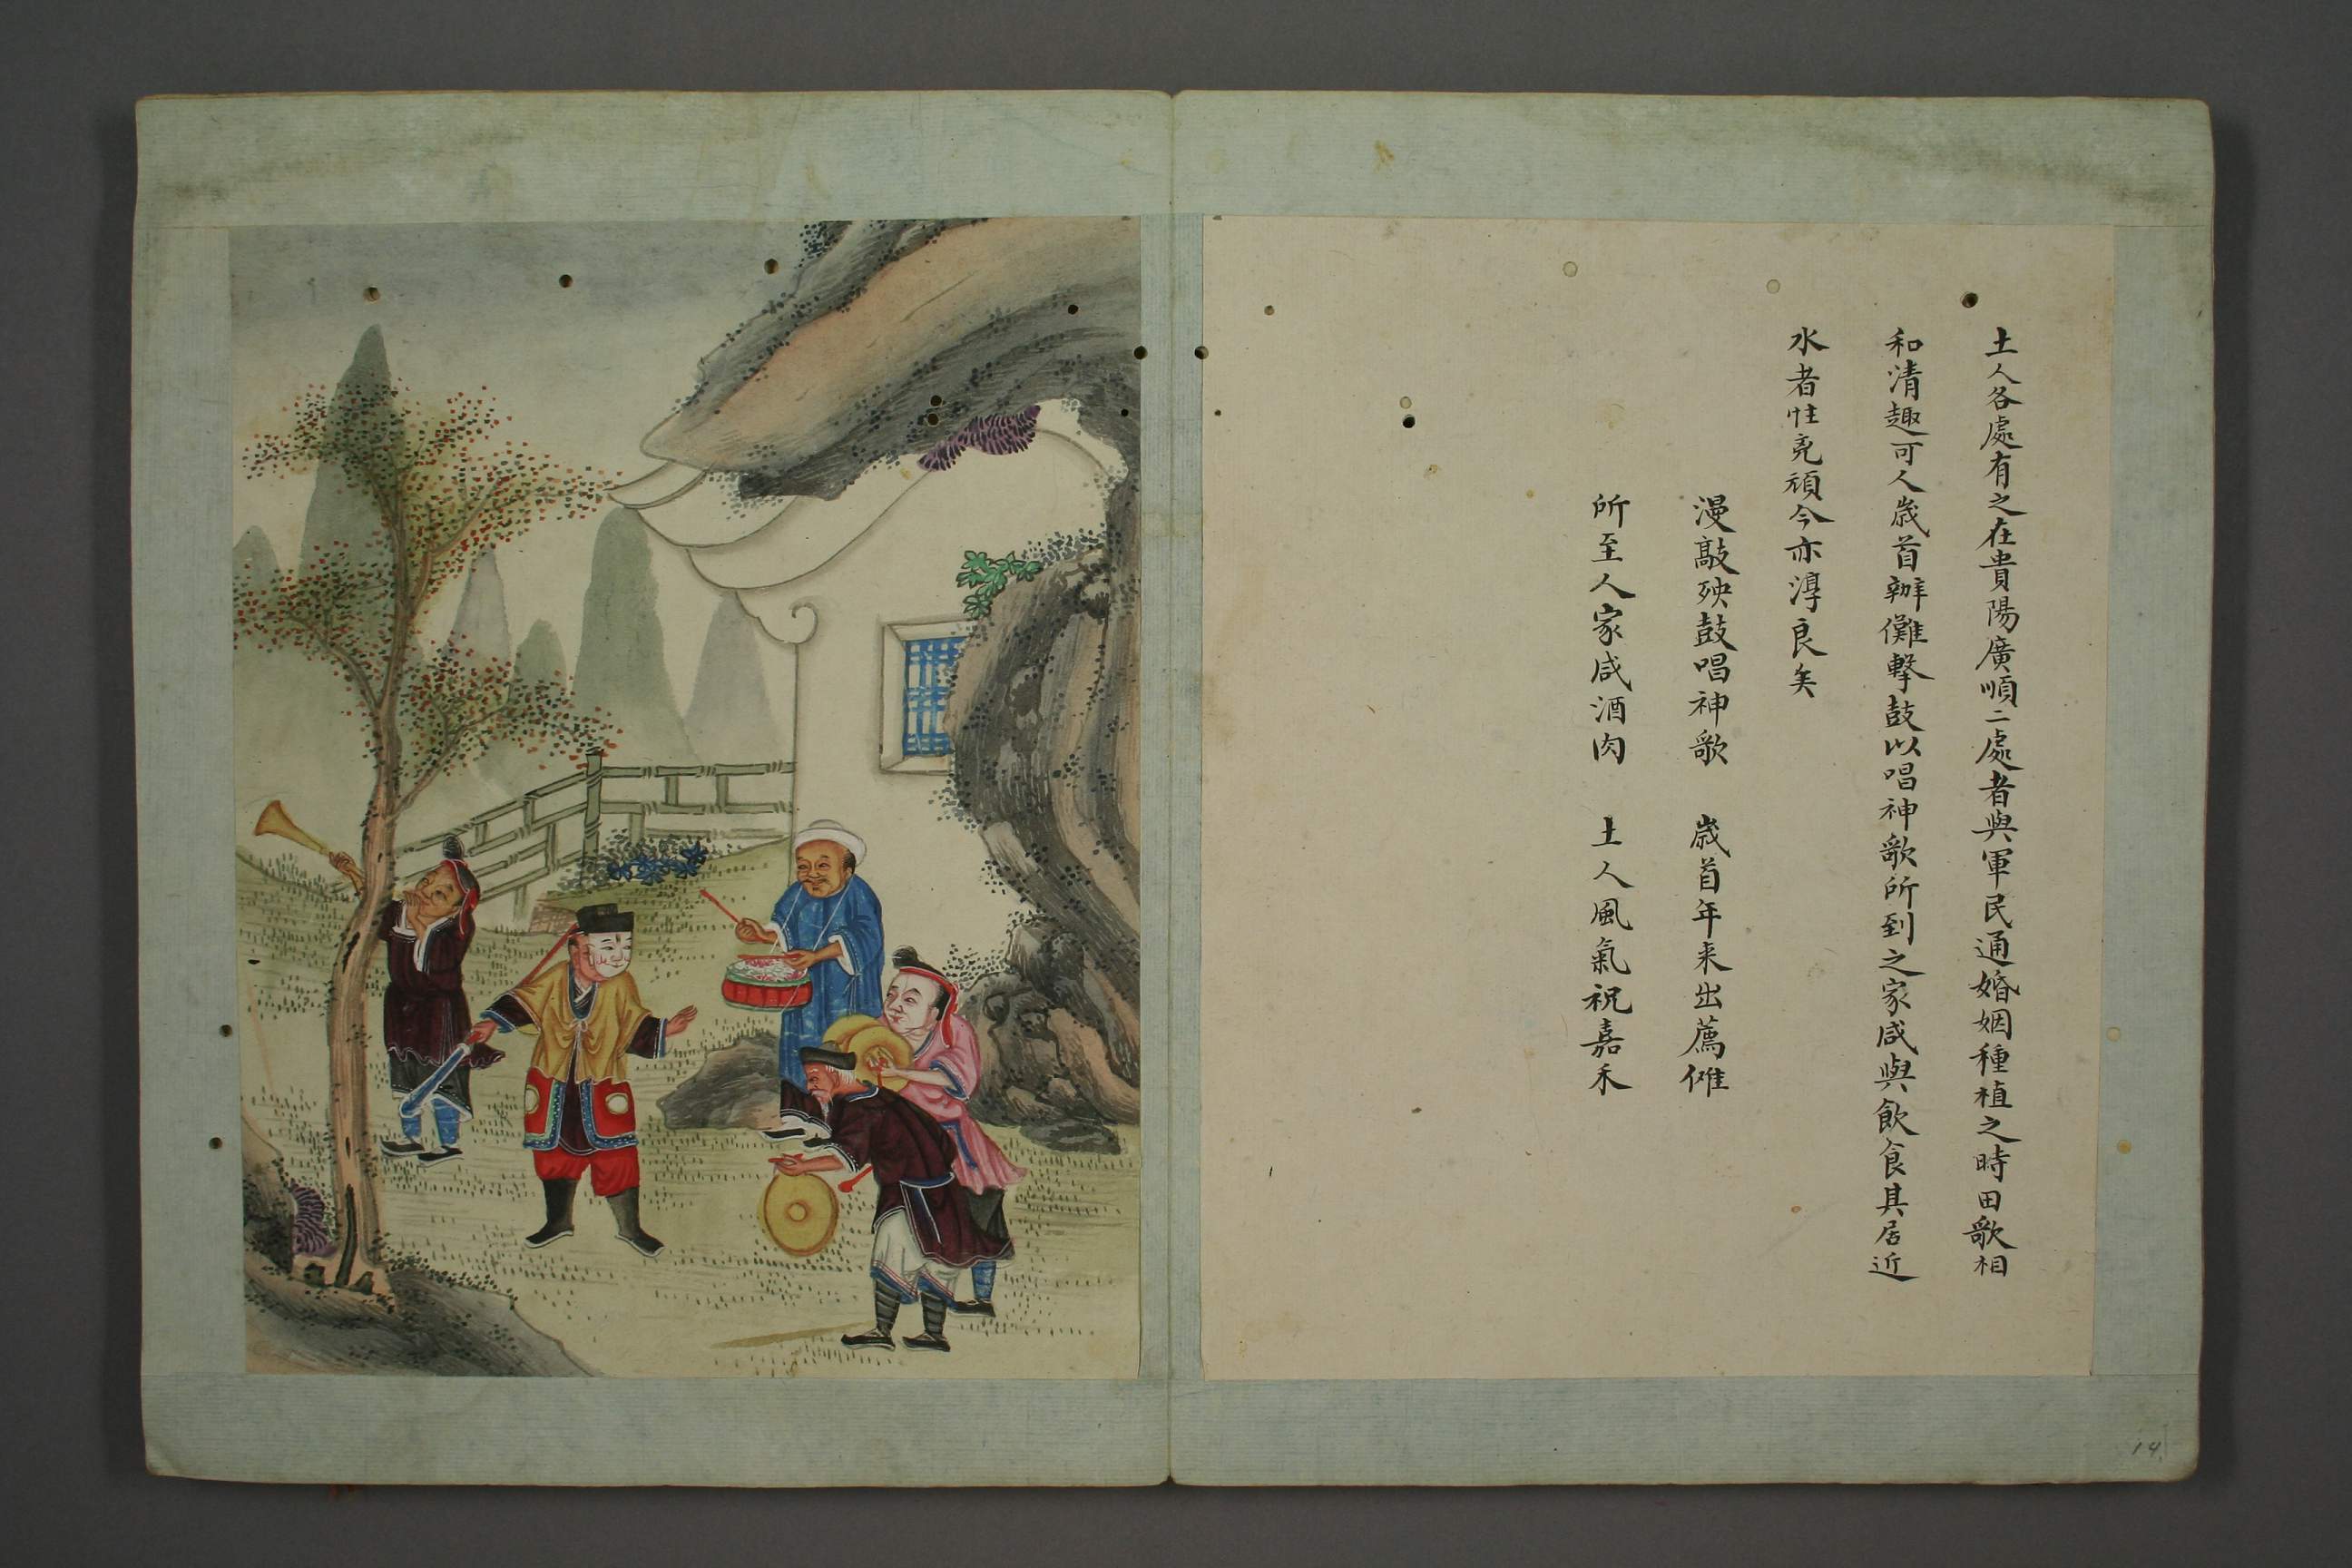 土人各處有之在貴陽廣順二處者與軍民通婚姻種植之時田歌相
和清趣可人歲首辦儺擊鼓以唱神歌所到之家咸與飲食其居近
水者性兇頑今亦淳良矣
漫敲殃鼓唱神歌 歲首年来出薦傩
所至人家咸酒肉 土人風氣祝嘉禾
14